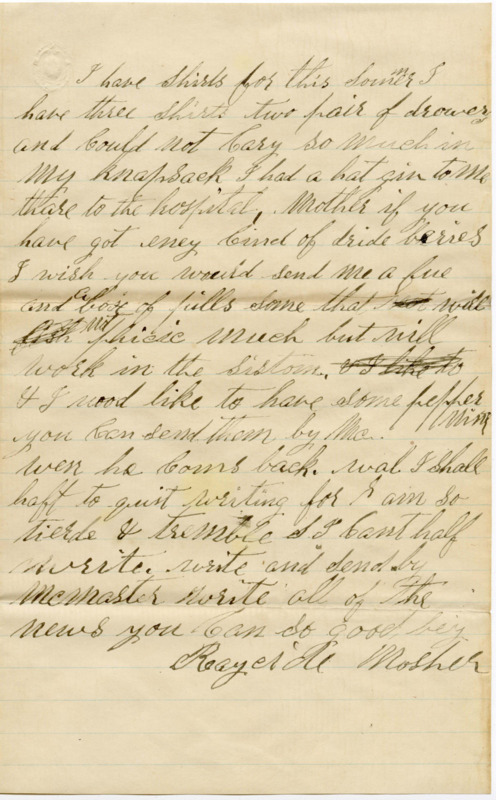 I have shirts for this somer I
have three shirts two pair of drowers
and Could not Cary so much in
my knapsack I had a hat gin to me
thare to the hospital, Mother if you
have got eney Cind of dride berries
I wish you would send me a fue
and a box of pills some that will
not phicic much but will
work in the sistom.
& I wood like to have some pepper
mint
you Can send them by Mc.
wen he Coms back. wal I shall
haft to quit writing for I am so
tierde & tremble s I Cant half
write. write and send by
McMaster write all of the
news you Can so good
Mosher